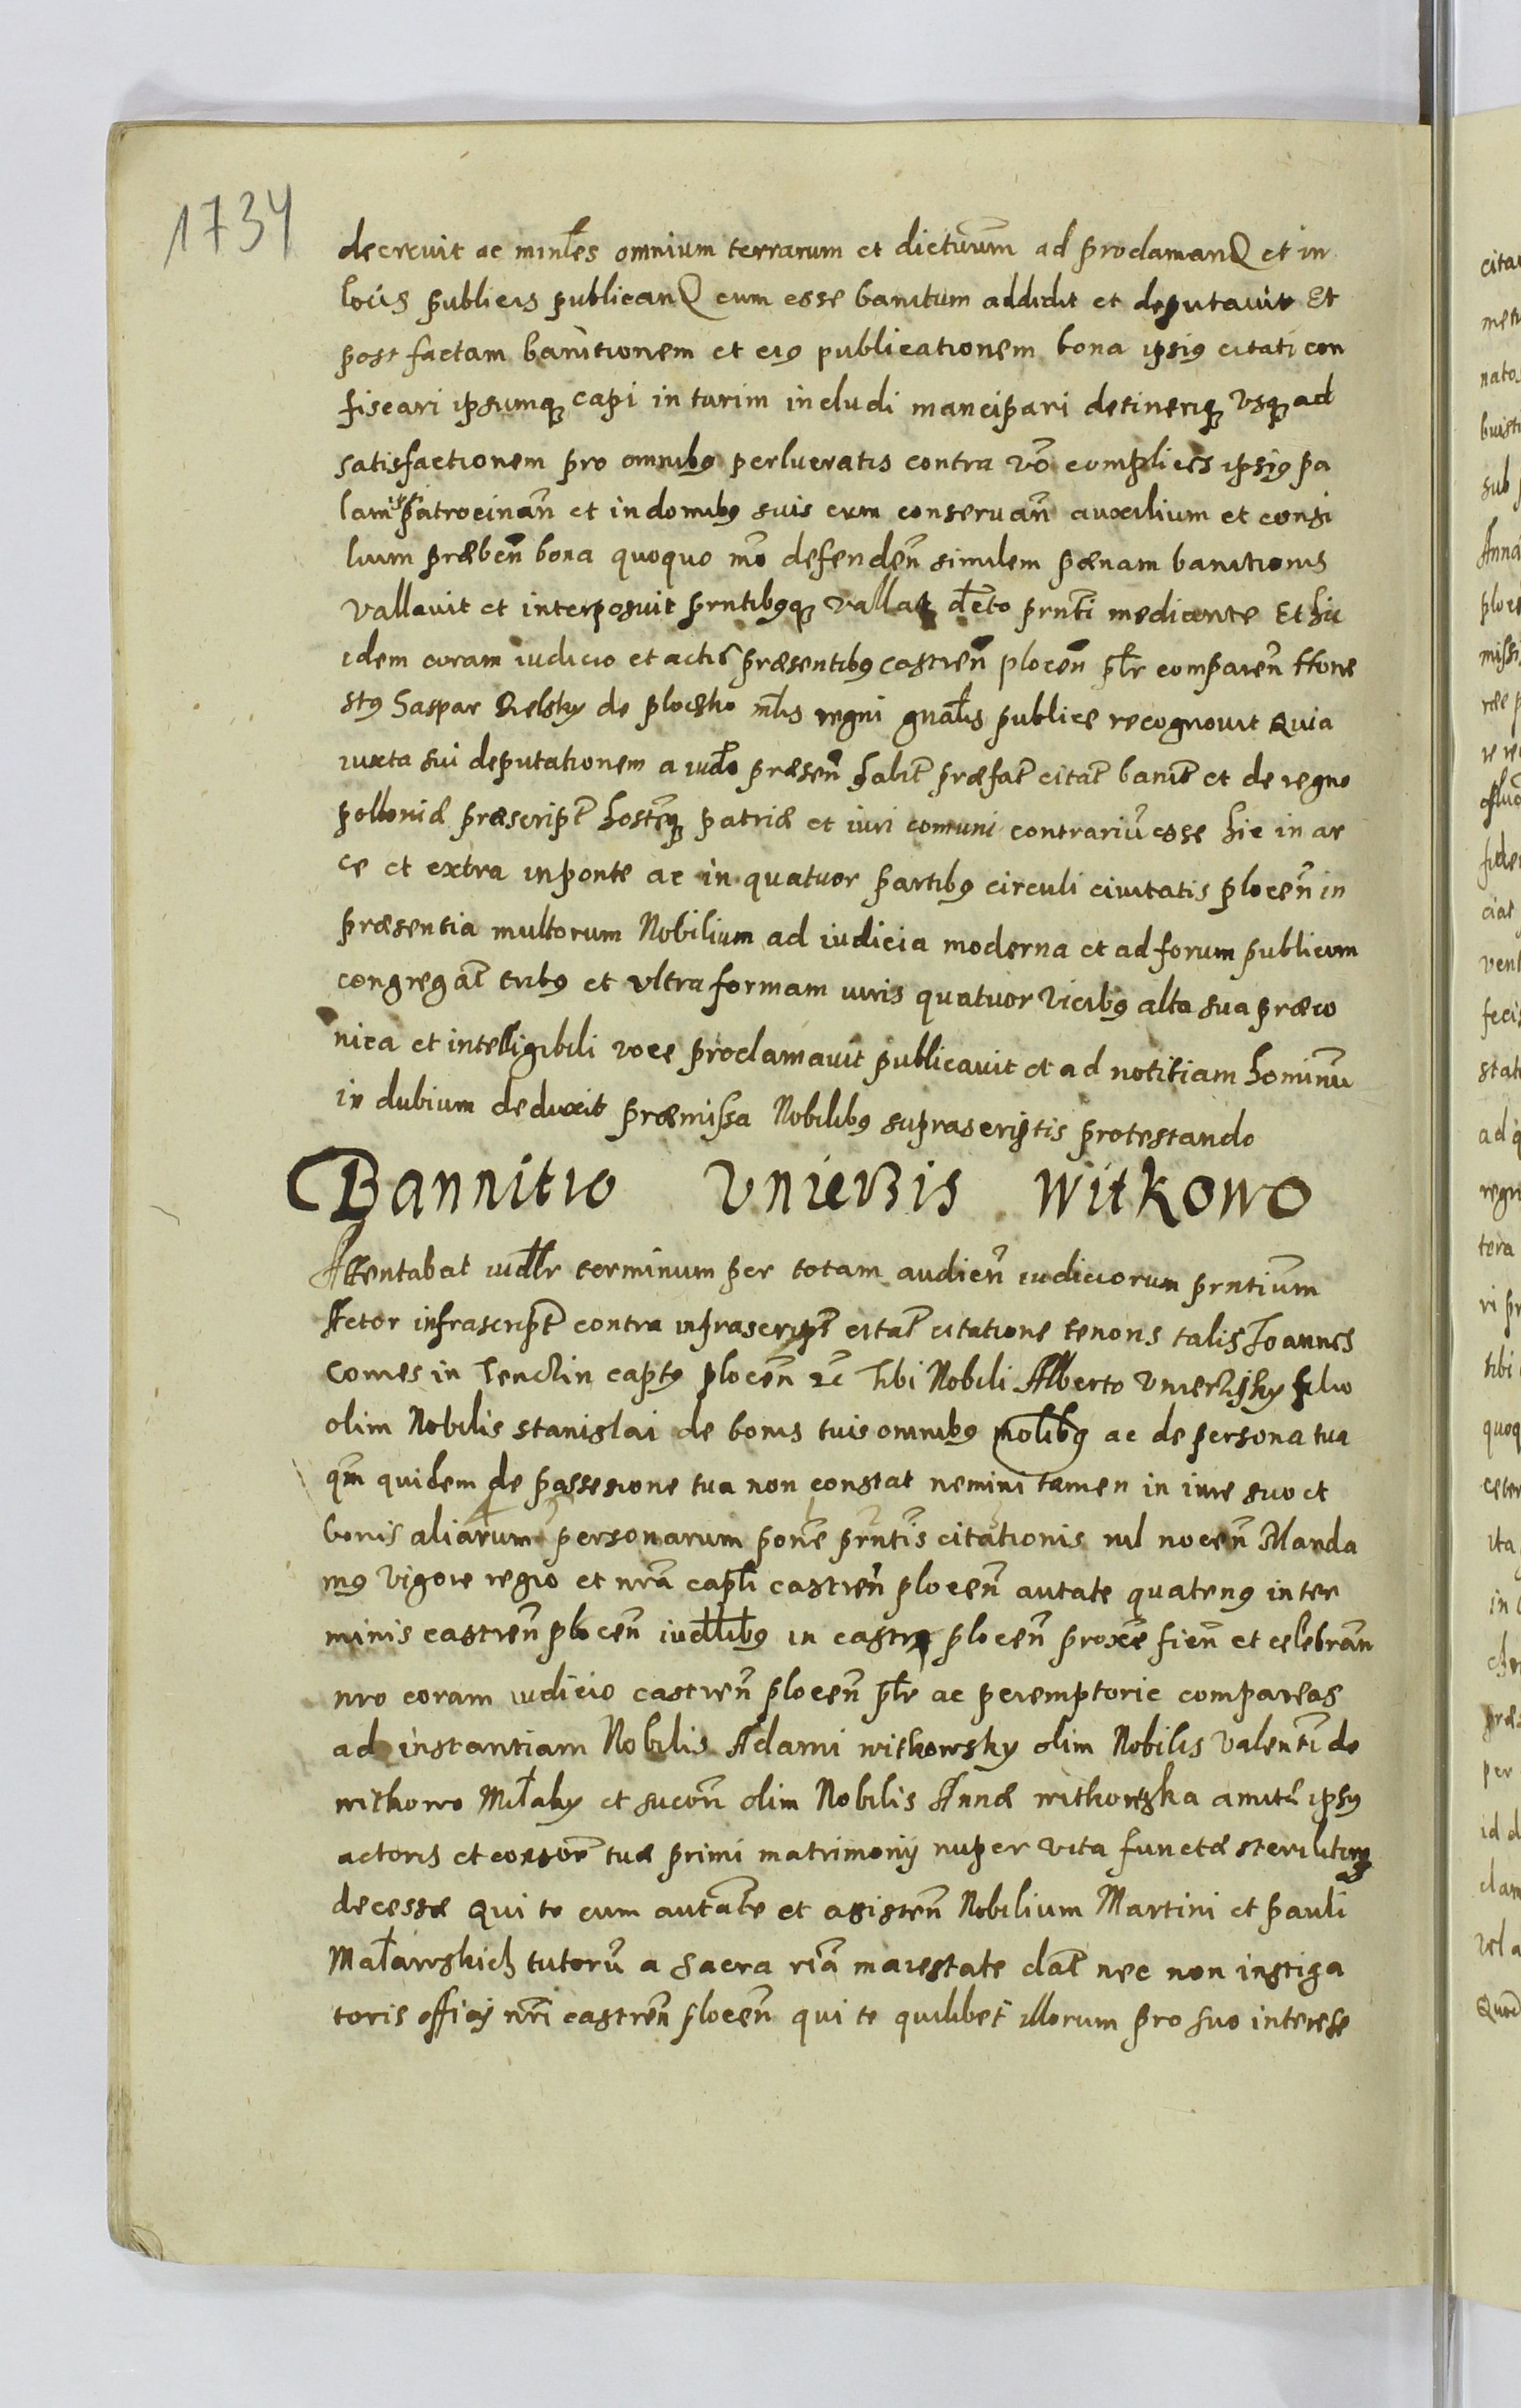 1734
decrevit ac minles omnium terrarum et dictuum ad proclamand et in
locis publicis publicand eum esse banitum addidit et deputavit Et
post factam banitionem et eius publicationem bona ipsius citati con
fiscari ipsumq capi in turim includi mancipari detineriq usq ad
satisfactionem pro omnibus perlucratis contra vo complices ipsius pa
lam patrocinan et in domibus suis eum conservan auxilium et consi
lium præben bona quoquo mo defenden similem pænam banitionis
vallavit et interposuit prntibusq vallat dcto prnti mediante Et hic
idem coram iudicio et actis præsentibus castren plocen plr comparen Hone
stus Gaspar Bielsky de plocsko mlis regni gnalis publice recognovit Quia
iuxta sui deputationem a iudo præsen habit præfat citat banit et de regno
polloniæ præscript hostemq patriæ et iuri comuni contrariu esse hic in ar
ce et extra in ponte ac in quatuor partibus circuli civitatis plocen in
præsentia multorum Nobilium ad iudicia moderna et ad forum publicum
congregat tribus et ultra formam iuris quatuor vicibus alta sua præco
nica et intelligibili voce proclamavit publicavit et ad notitiam hominu
in dubium deduxit præmissa Nobilibus suprascriptis protestando
Bannitio Unierzis Witkowo
Attentabat iudlr terminum per totam audien iudiciorum prntium
Actor infrascript contra infrascript citat citatione tenoris talis Joannes
Comes in Tenczin captus plocen etc Tibi Nobili Alberto Unierzisky filio
olim Nobilis Stanislai de bonis tuis omnibus molibus ac de persona tua
qm quidem de possesione tua non constat nemini tamen in iure suo et
bonis aliarum personarum pone prntis citationis nil nocen Manda
mus vigore regio et nra capli castren plocen autate quatenus in ter
minis castren plocen iudlibus in castro plocen proxe fien et celebran
nro coram iudicio castren plocen plr ac peremptorie compareas
ad instantiam Nobilis Adami witkowsky olim Nobilis Valenti de
witkowo Młaky et sucon olim Nobilis Annæ witkowska amitæ ipsius
actoris et consor tuæ primi matrimonij nuper vita functæ sterilitus
decessæ Qui te cum autate et asisten Nobilium Martini et pauli
Maławskich tutoru a sacra ria maiestate dat nec non instiga
toris officij nri castren plocen qui te quilibet illorum pro suo interese